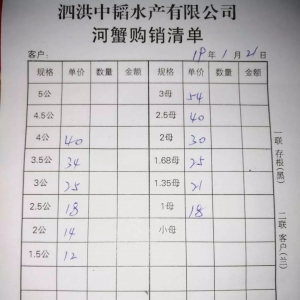 泗洪中韬水产有限公司
河蟹购销清单
客户： 19年1月21日
规格 单价 数量 金额 规格 单价 数量 金额
5公 3母 54
4.5公 2.5母 40
4公 40 2母 30
3.5公 34 1.68母 25
3公 25 1.35母 21
2.5公 18 1母 18
2公 14 小母
1.5公 12
一联 存根(黑)
二联 客户(三)